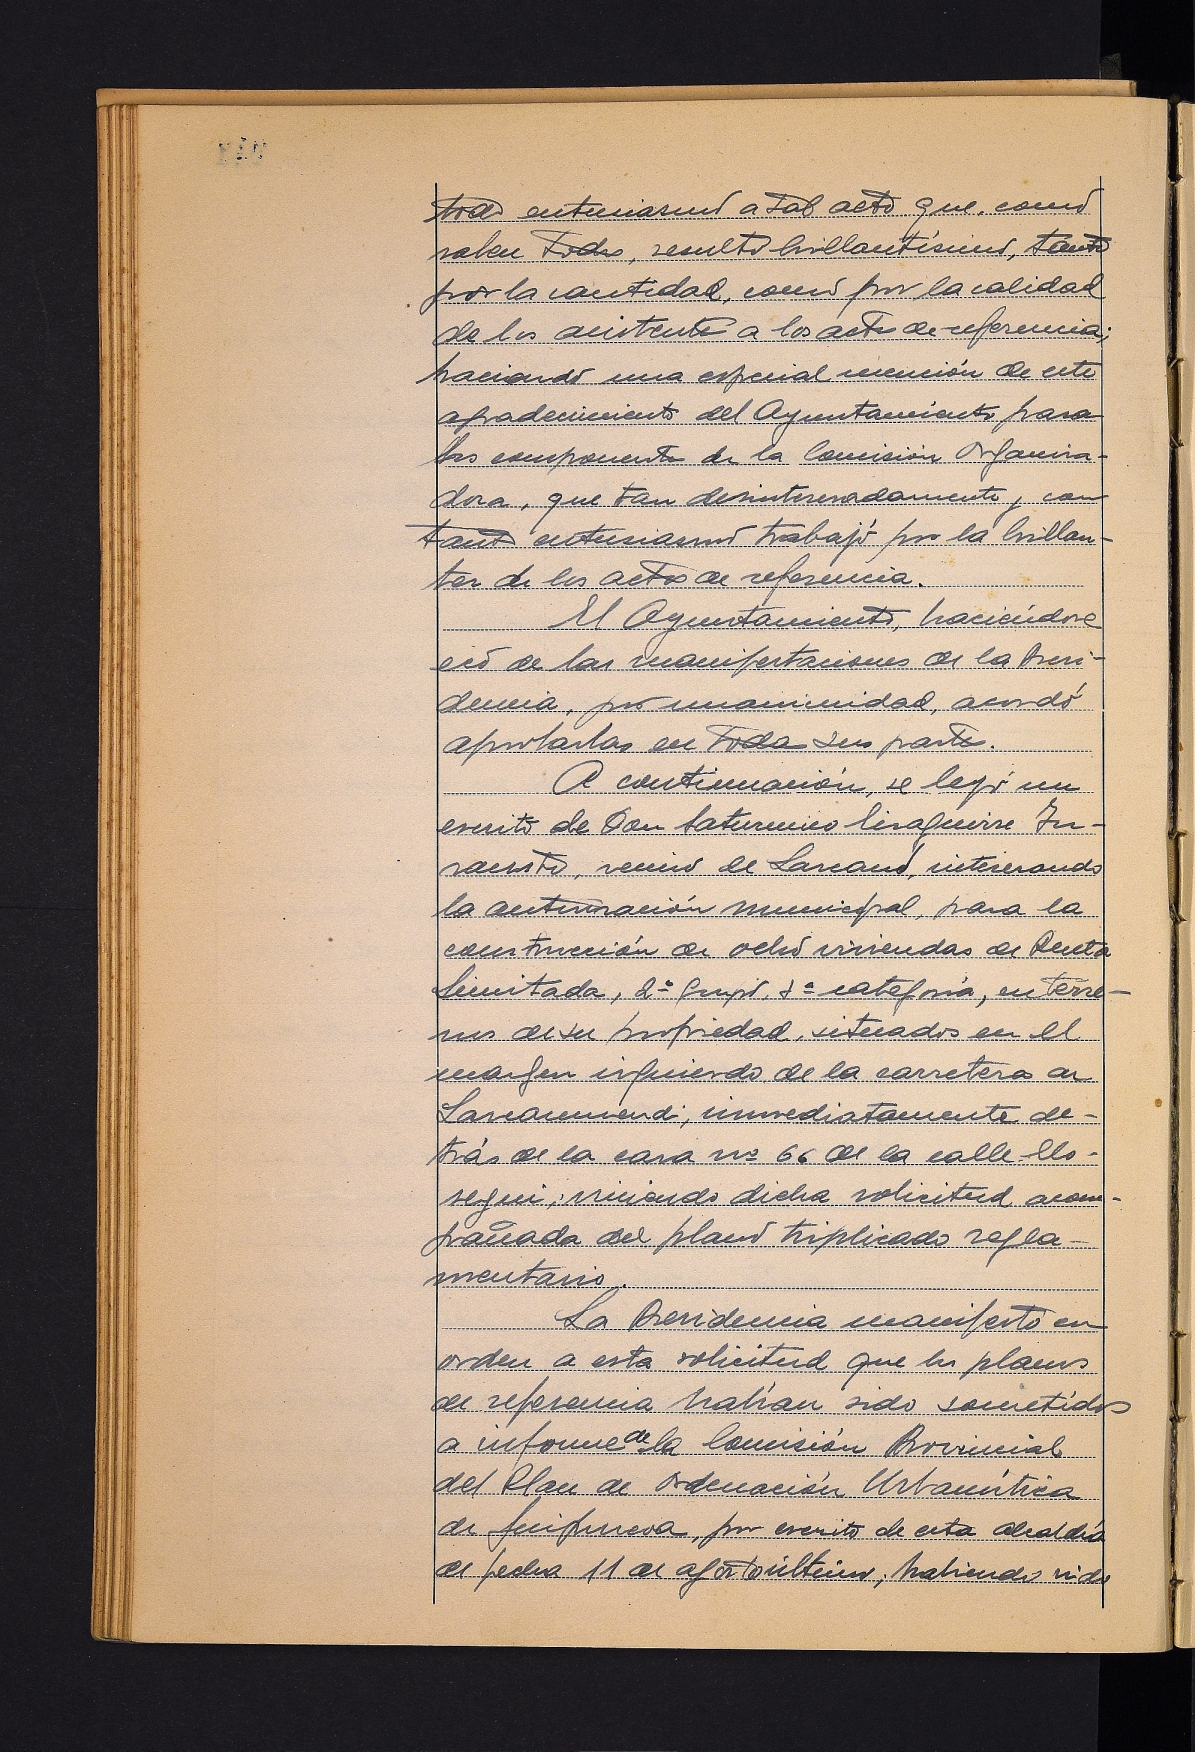 todo entusiasmo a tal acto que, como
saben todos, resultó brillantísimo, tanto
por la cantidad, como por la calidad
de los asistentes a los actos de referencia;
haciendo una especial mención de este
agradecimiento del Ayuntamiento para
los componentes de la Comisión Organiza-
dora, que tan desinteresadamente y con
tanto entusiasmo trabajó por la brillan-
tez de los actos de referencia.
El Ayuntamiento, haciéndose
eco de las manifestaciones de la Presi-
dencia, por unanimidad, acordó
aprobarlas en todas sus partes.
A continuación, se leyó un
escrito de Don Saturnino
vecino de Lazcano, interesando
la autorización municipal, para la
construcción de ocho viviendas de Renta
Limitada, 2º Grupo, 3ª categoría, en terre-
nos de su propiedad, situados en el
margen izquierdo de la carretera de
Lazcanomendi, inmediatamente de-
trás de la casa nº 66 de la calle Elo-
segui; viniendo dicha solicitud acom-
pañada del plano triplicado regla-
mentario.
La Presidencia manifestó en
orden a esta solicitud que los planos
de referencia habían sido sometidos
a informe de la Comisión Provincial
del Plan de Ordenación Urbanística
de Guipúzcoa, por escrito de esta alcaldía
de fecha 11 de agosto último; habiendo sido